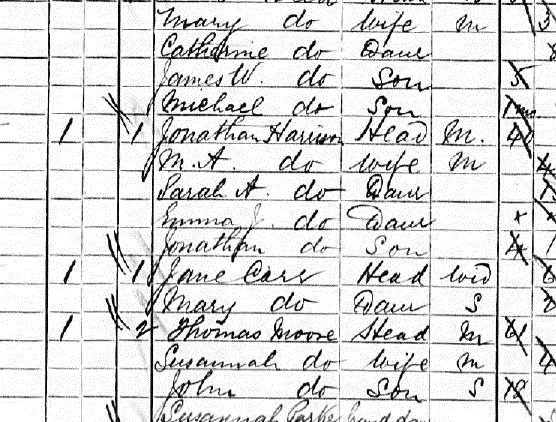 Mary do Wife M
Catherine do Daur
James W. do Son 5
Michael do Son
1 1 Jonathan Harrison Head M. 41
M. A. do Wife M
Sarah A. do Daur
Emma J. do Daur
Jonathan do Son 4
1 1 Jane Carr Head Wid
Mary do Daur S
1 2 Thomas Moore Head M 61
Susannah do Wife M
John do Son S 18
Susannah Parke